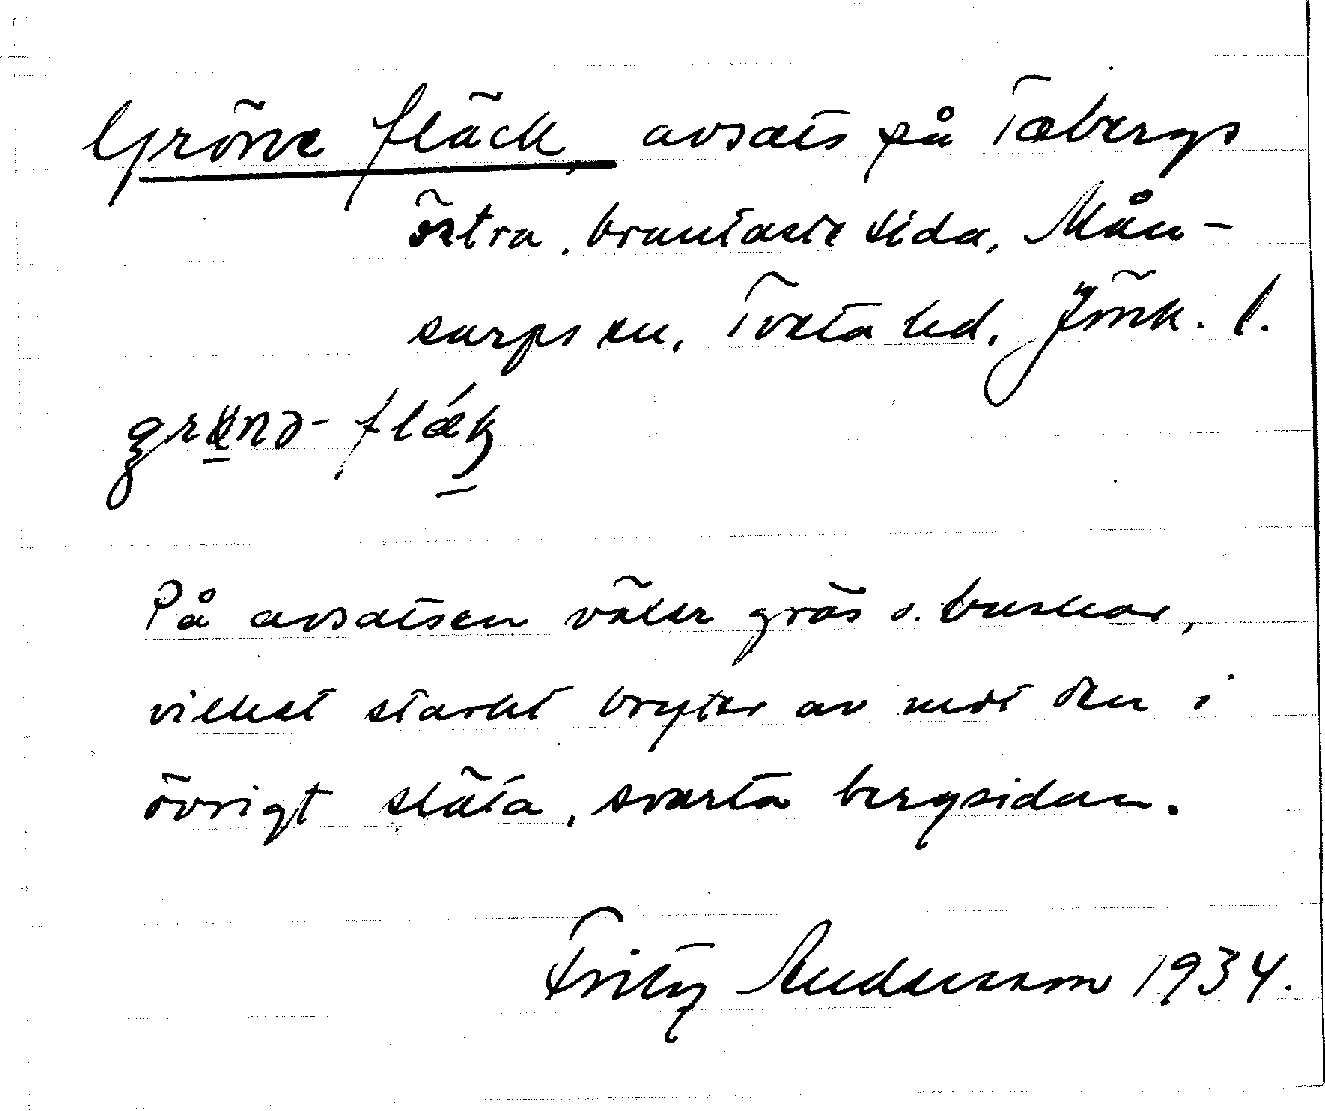 Gröne fläck, avsats på Tabergs
östra, brantaste sida, Mån-
sarps sn, Tveta hd, Jönk. l.
På avsatsen växer gräs o. buskar,
vilket starkt bryter av mot den i
övrigt släta, svarta bergsidan.
Fritz Andersson 1934.